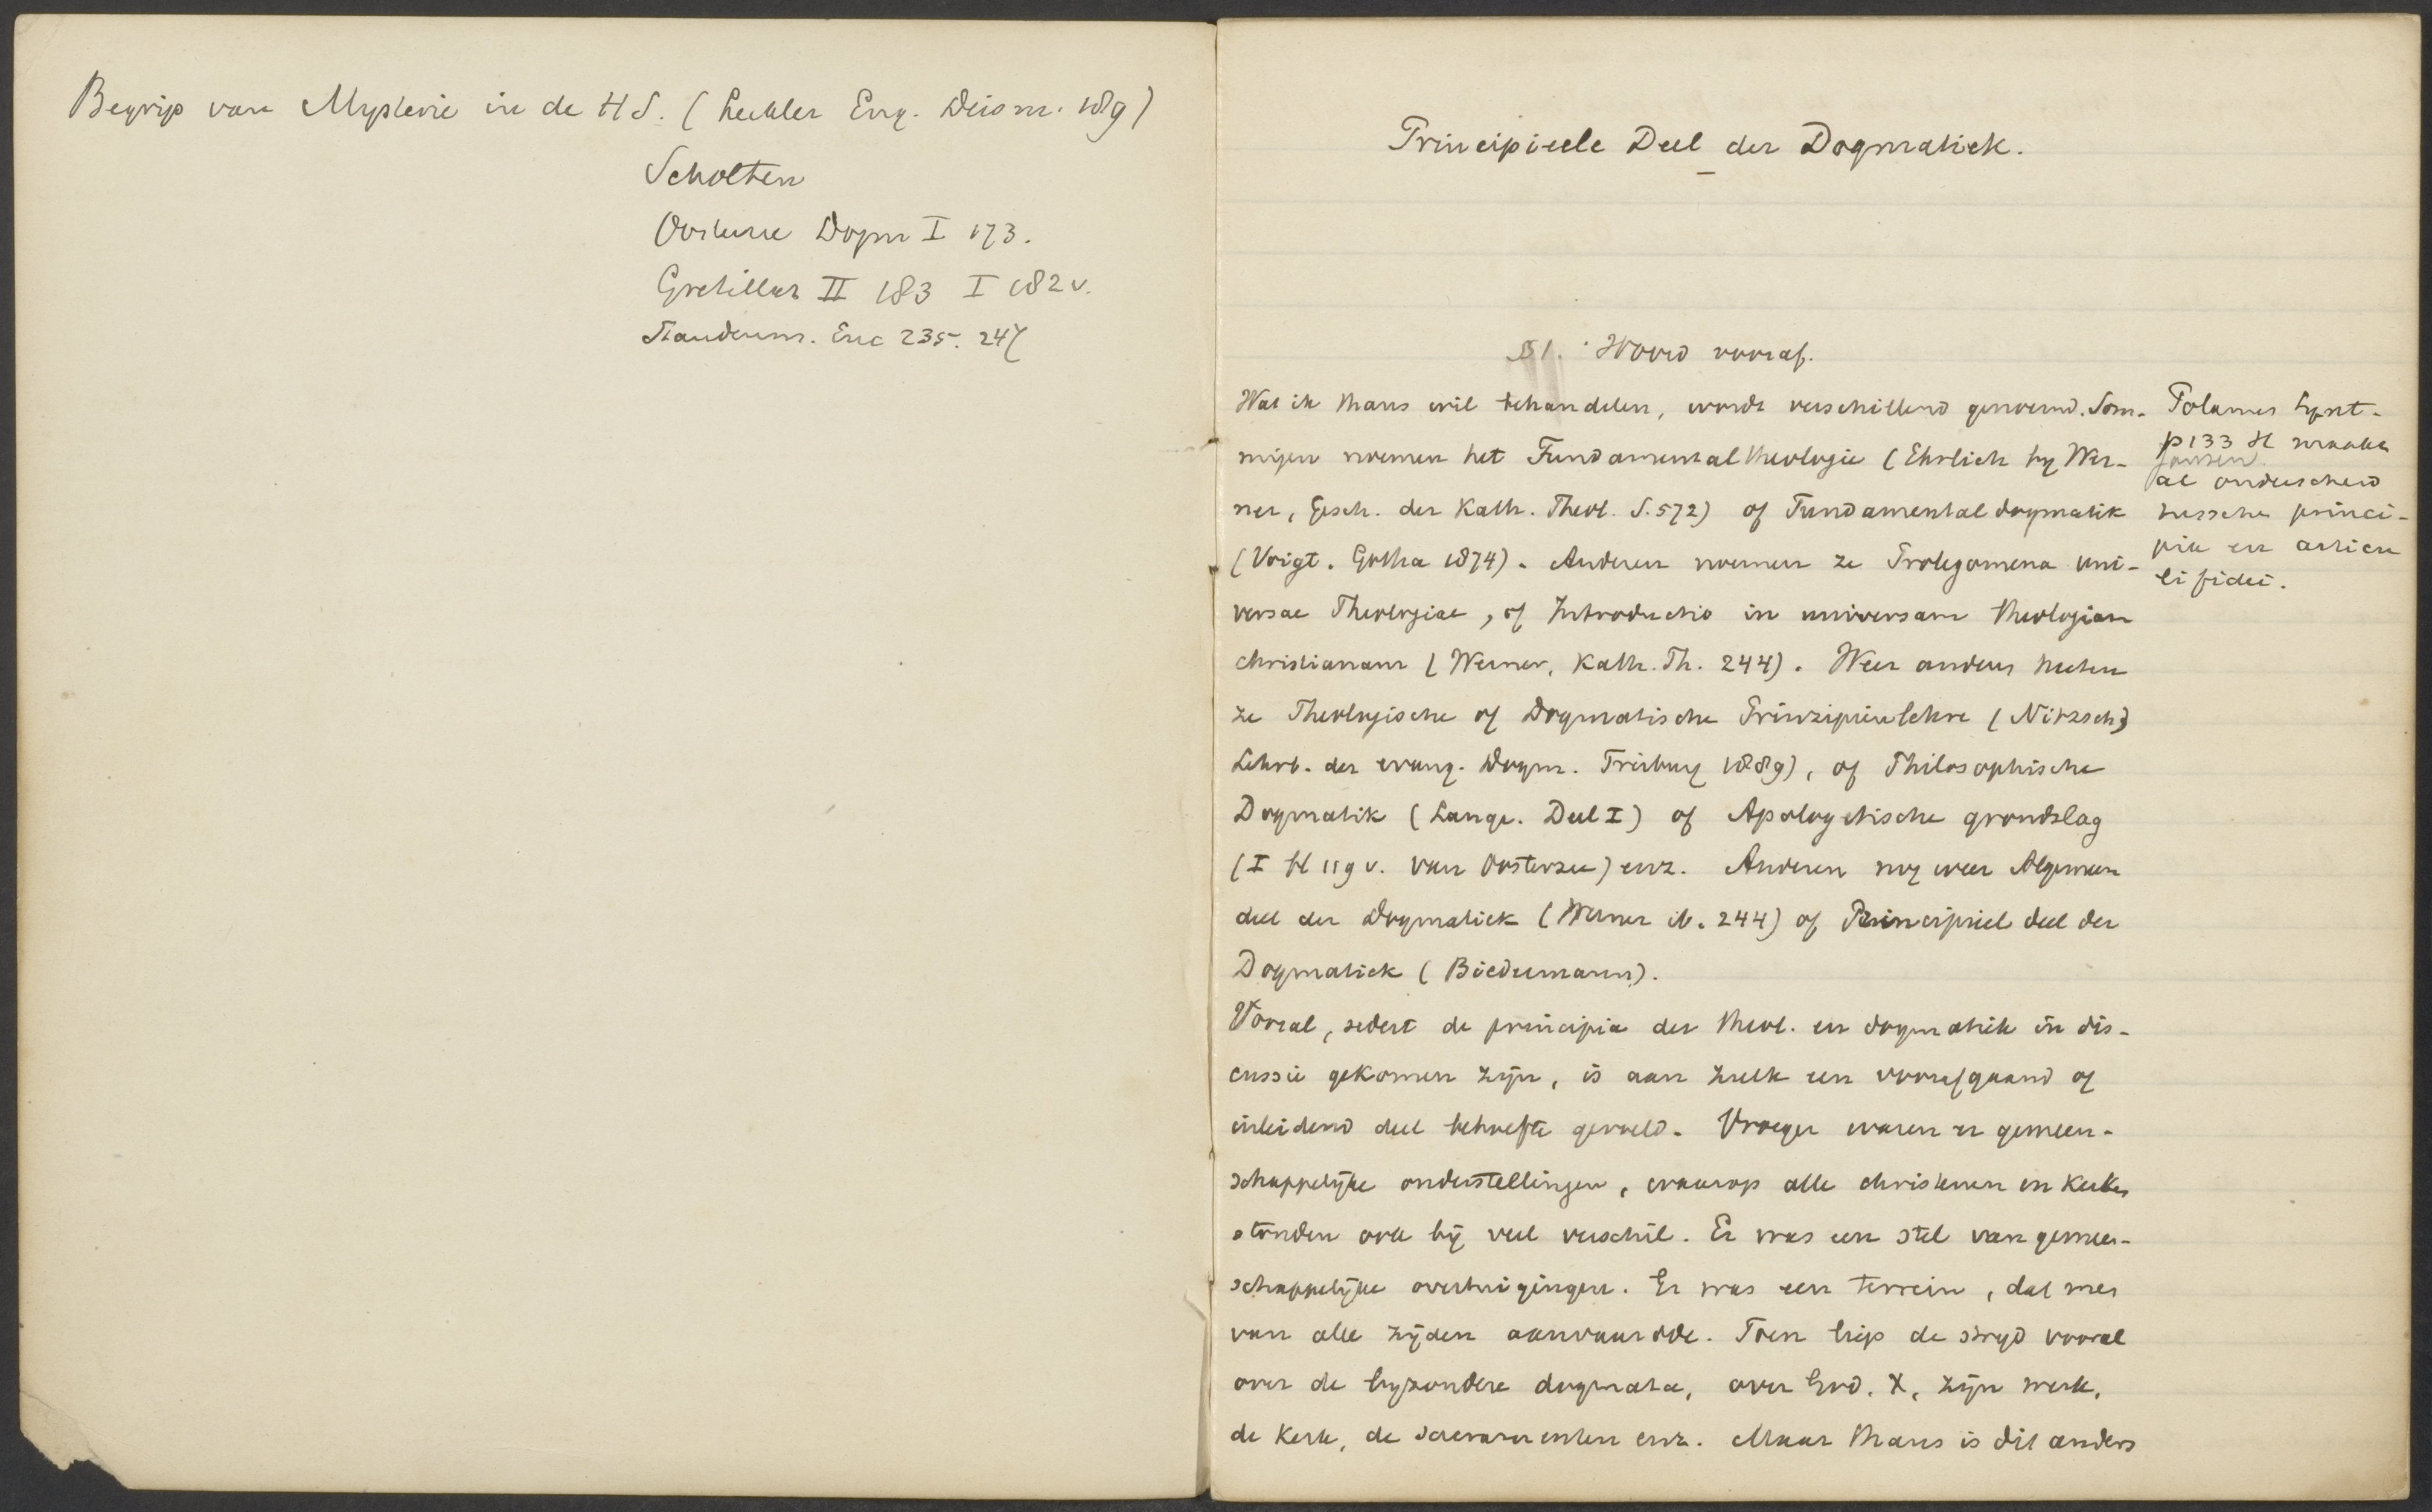 Begrip van Mysterie in de HS. (Lechler Eng. Deism. 189)
Scholten
Oosterzee Dogm I 173.
Gretillat II 183 I 182 v.
Staudenm. Enc 235. 247
Principieele Deel der Dogmatiek.
§1. Woord vooraf.
Wat ik thans wil behandelen, wordt verschillend genoemd. Som-
migen noemen het Fundamentaltheologie (Ehrlich by Wer-
ner, Gesch. der Kath. Theol. S. 572) of Fundamentaldogmatik
(Voigt. Gotha 1874). Anderen noemen ze Prolegomena uni-
versae Theologiae, of Introductio in universam theologiam
christianam (Werner, Kath. Th. 244). Weer anders heeten
ze Theologische of Dogmatische Prinzipienlehre (Nitzsch,
Lehrb. der evang. Dogm. Freiburg 1889), of Philosophische
Dogmatik (Lange. Deel I) of Apologetische grondslag
(I bl 119 v. van Oosterzee) enz. Anderen nog weer Algemeen
deel der Dogmatiek (Werner ib. 244) of Principieel deel der
Dogmatiek (Biedermann).
Vooral, sedert de principia der theol. en dogmatiek in dis-
cussie gekomen zijn, is aan zulk een voorafgaand of
inleidend deel behoefte gevoeld. Vroeger waren er gemeen-
schappelijke onderstellingen, waarop alle christenen en kerken
stonden ook bij veel verschil. Er was een stel van gemeen-
schappelijke overtuigingen. Er was een terrein, dat men
van alle zijden aanvaardde. Toen liep de strijd vooral
over de byzondere dogmata, over God, X, zijn werk,
de kerk, de sacramenten enz. Maar thans is dit anders
Polanus Synt.
p 133 H maakte
al onderscheid
tusschen princi-
pia en articu
li fidei.